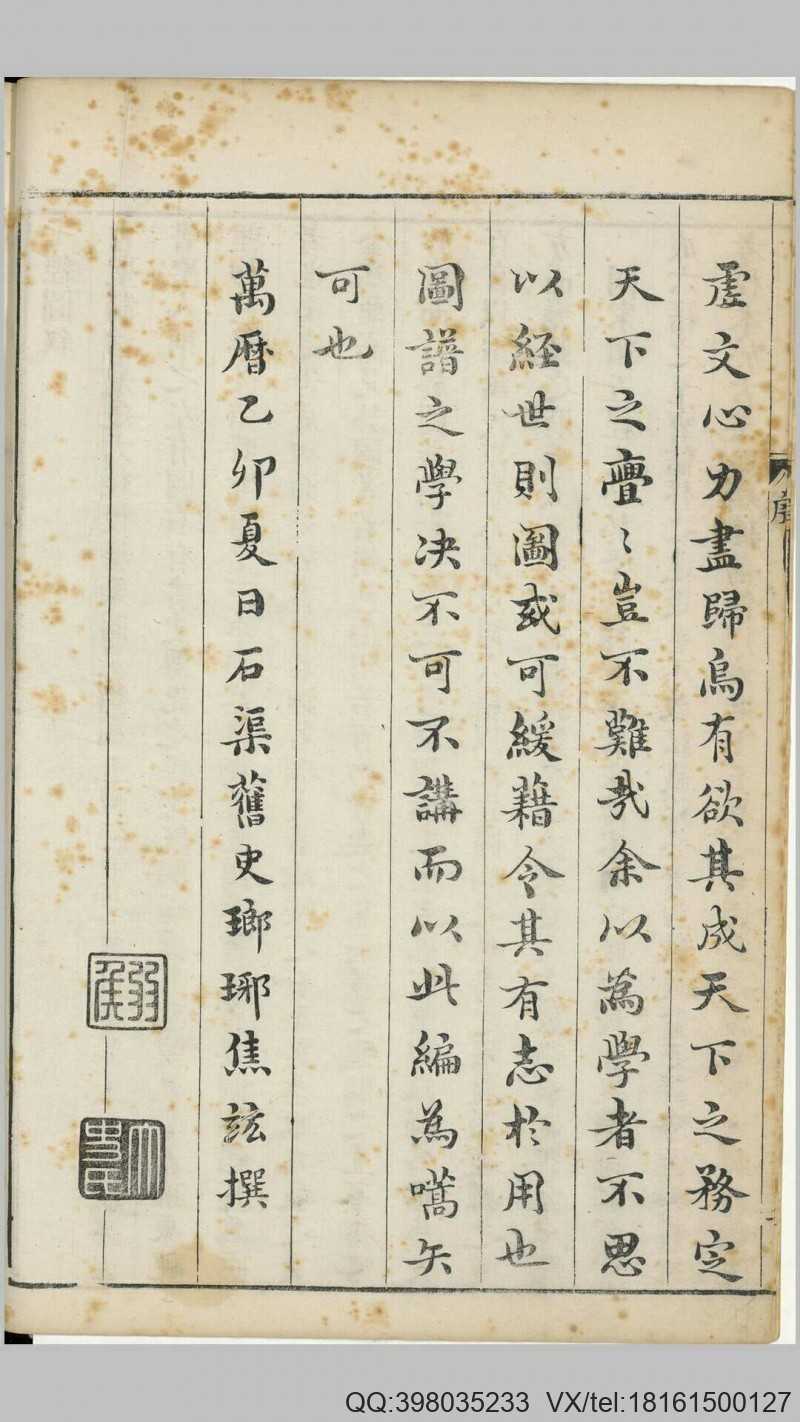 虛文心力盡歸烏有欲其成天下之務定
天下之亹〻豈不難哉余以為學者不思
以經世則圖或可緩藉令其有志於用也
圖譜之學決不可不講而以此編為嚆矢
可也
萬曆乙卯夏日石渠舊史瑯琊焦竑撰
QQ:398035233 VX/tel:18161500127